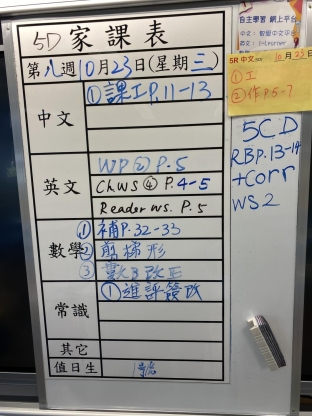 5D 家課表
第八週10月23日(星期三)
中文
①課工P.11-13
英文
WP② P.5
ChWS ④ P.4-5
Reader ws. P.5
數學
①補P.32-33
②剪梯形
③數B改正
常識
①進評簽改
其它
值日生
自主學習 網上平台
中文:
英文: i-Learner
5R 中文
10月23日
①工
②作P.5-7
5CD
RBP.13-14
+Corr
WS2